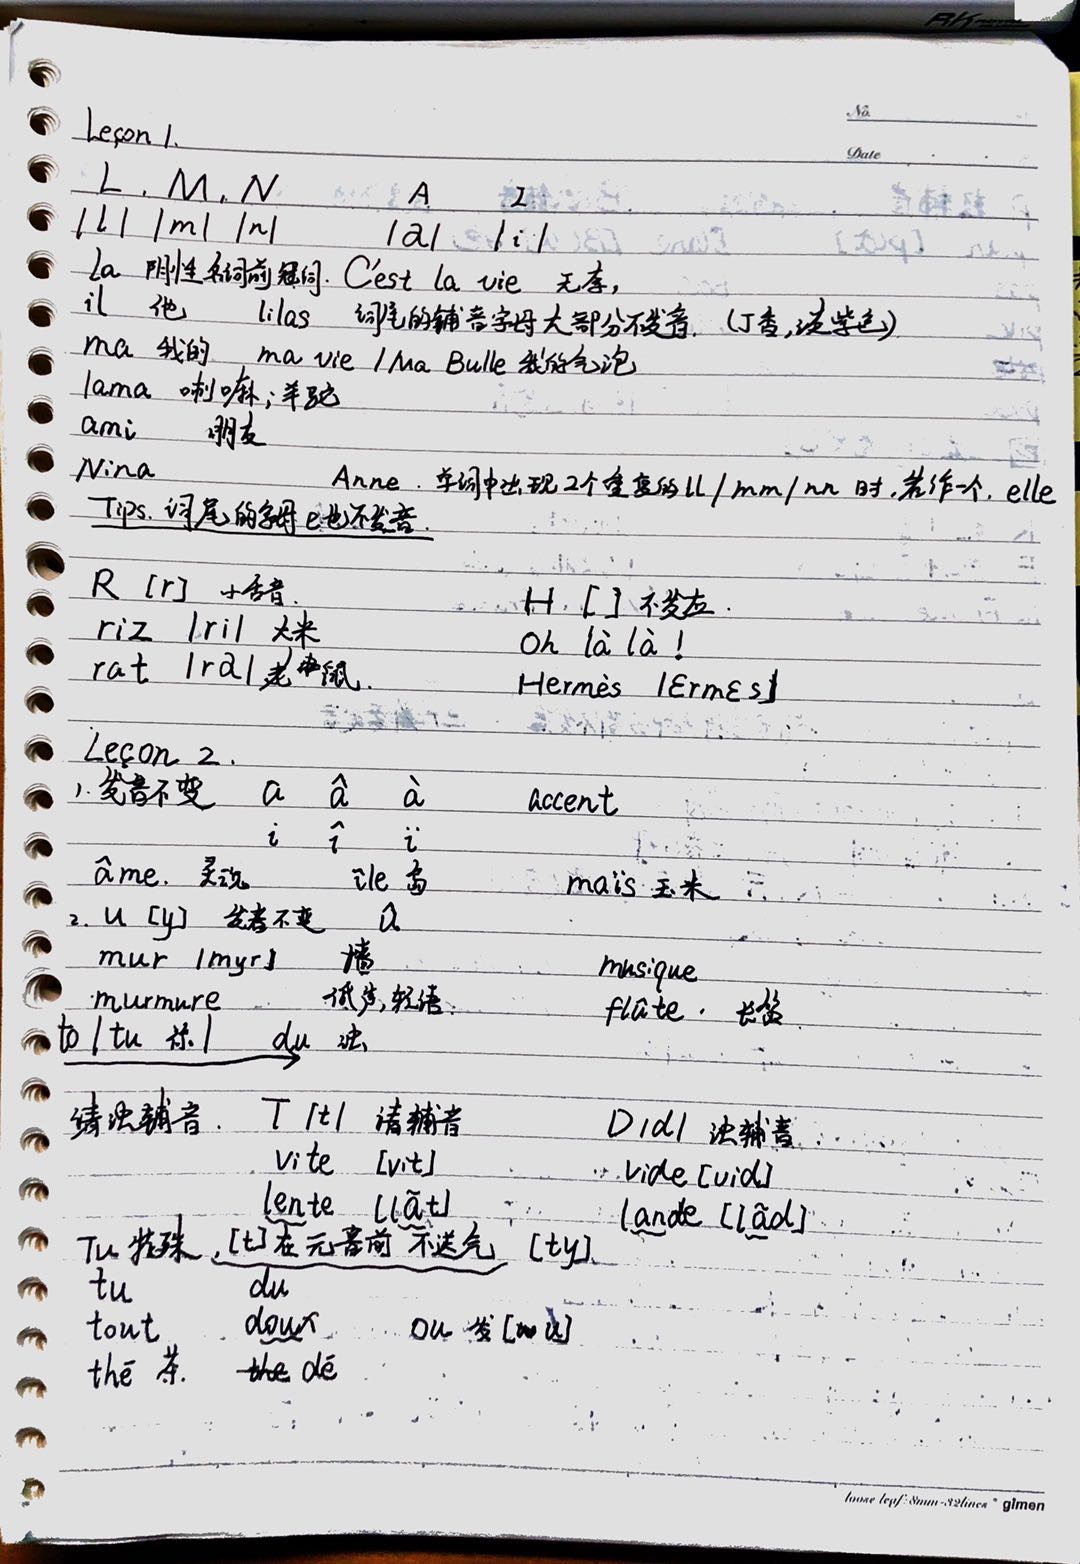 No.
Date
Leçon 1.
L . M . N A I
|l| |m| |n| |a| |i|
la 阴性名词前冠词. C'est la vie 无奈,
il 他 lilas 词尾的辅音字母大部分不发音. (丁香,淡紫色)
ma 我的 ma vie / Ma Bulle 我的气泡
lama 喇嘛;羊驼
ami 朋友
Nina Anne . 单词中出现2个重复的ll/mm/nn 时,若作一个. elle
Tips. 词尾的字母e也不发音.
R [r] 小舌音. H [ ] 不发音.
riz |ri| 大米 Oh là là !
rat |ra| 老鼠. Hermès [ɛrmɛs]
Leçon 2.
1. 发音不变 a â à accent
i î ï
âme. 灵魂 île 岛 maïs 玉米
2. u [y] 发音不变 û
mur [myr] 墙 musique
murmure 低声,轻语. flûte . 长笛
to | tu 你 | du 浊
清浊辅音. T |t| 清辅音 D |d| 浊辅音
vite [vit] vide [vid]
lente [lãt] lande [lãd]
Tu 特殊. [t]在元音前 不送气 [ty]
tu du
tout doux ou 发 [u]
thé 茶. the dé
loose leaf: 8mm-32lines * glmen